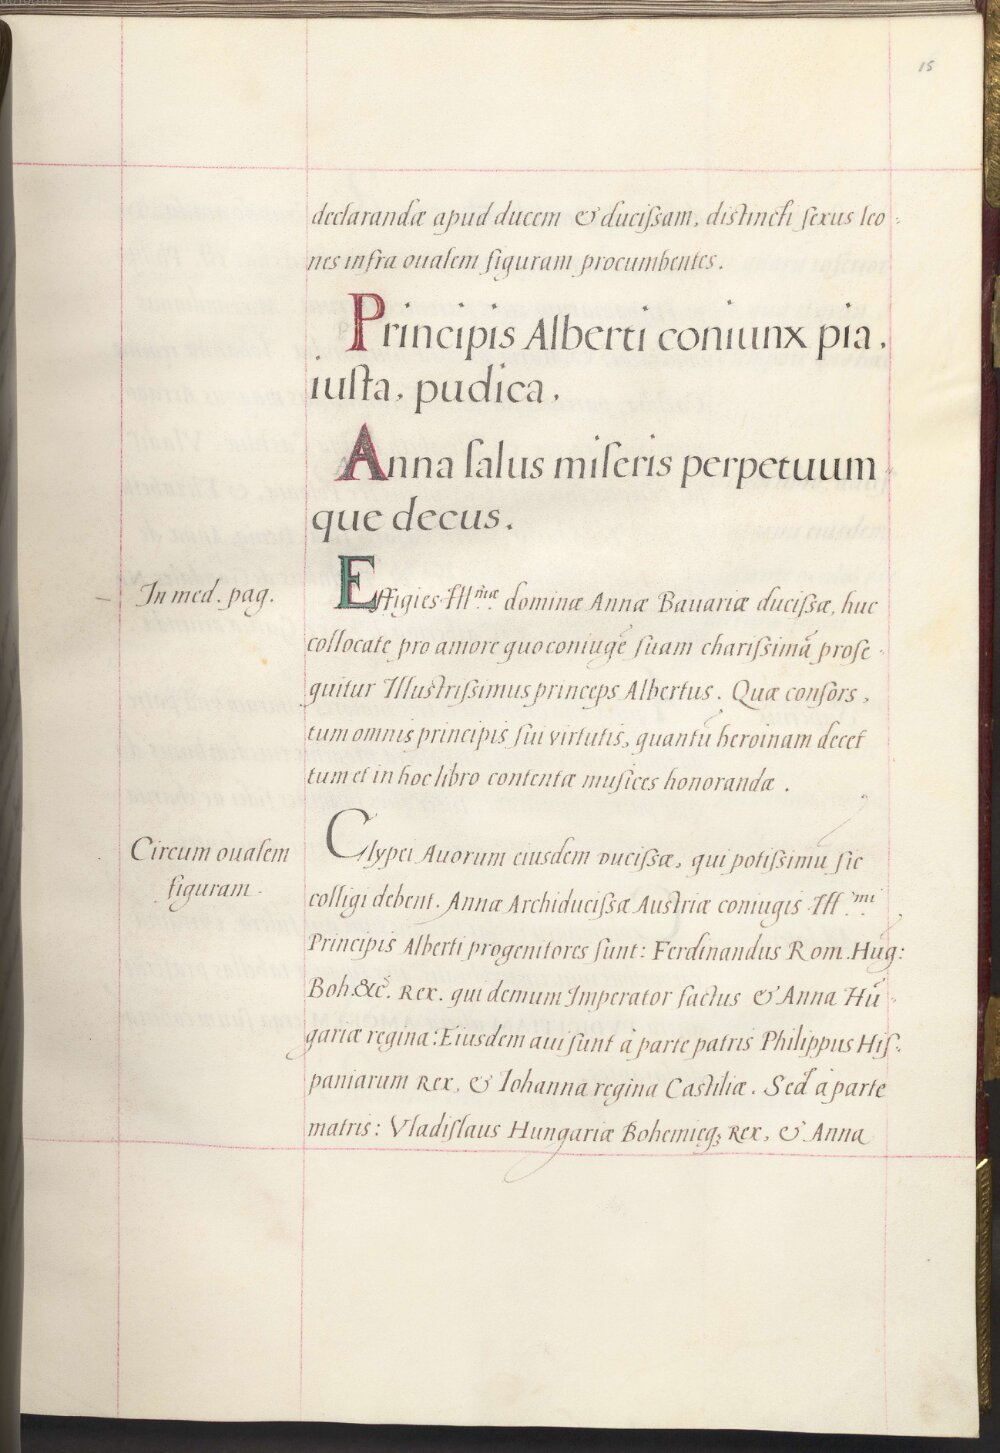 15
declarandæ apud ducem & ducißam, distincti sexus leo-
nes infra oualem figuram procumbentes.
Principis Alberti coniunx pia,
iusta, pudica,
Anna salus miseris perpetuum-
que decus.
In med. pag.
Effigies Illmæ dominæ Annæ Bauariæ ducißæ, huc
collocatę pro amore quo coniugē suam charißimā prose-
quitur Illustrißimus princeps Albertus. Quæ consors,
tum omnis principis sui virtutis, quantū heroinam decet
tum et in hoc libro contentæ musices honorandæ.
Circum oualem
figuram.
Clypei Auorum eiusdem Ducißæ, qui potißimū sic
colligi debent. Annæ Archiducißæ Austriæ coniugis Illmi
Principis Alberti progenitores sunt: Ferdinandus Rom. Hūg:
Boh. &c. Rex. qui demum Imperator factus & Anna Hū-
gariæ regina: Eiusdem aui sunt à parte patris Philippus His-
paniarum Rex, & Iohanna regina Castiliæ. Sed à parte
matris: Vladislaus Hungariæ Bohemięq; Rex, & Anna